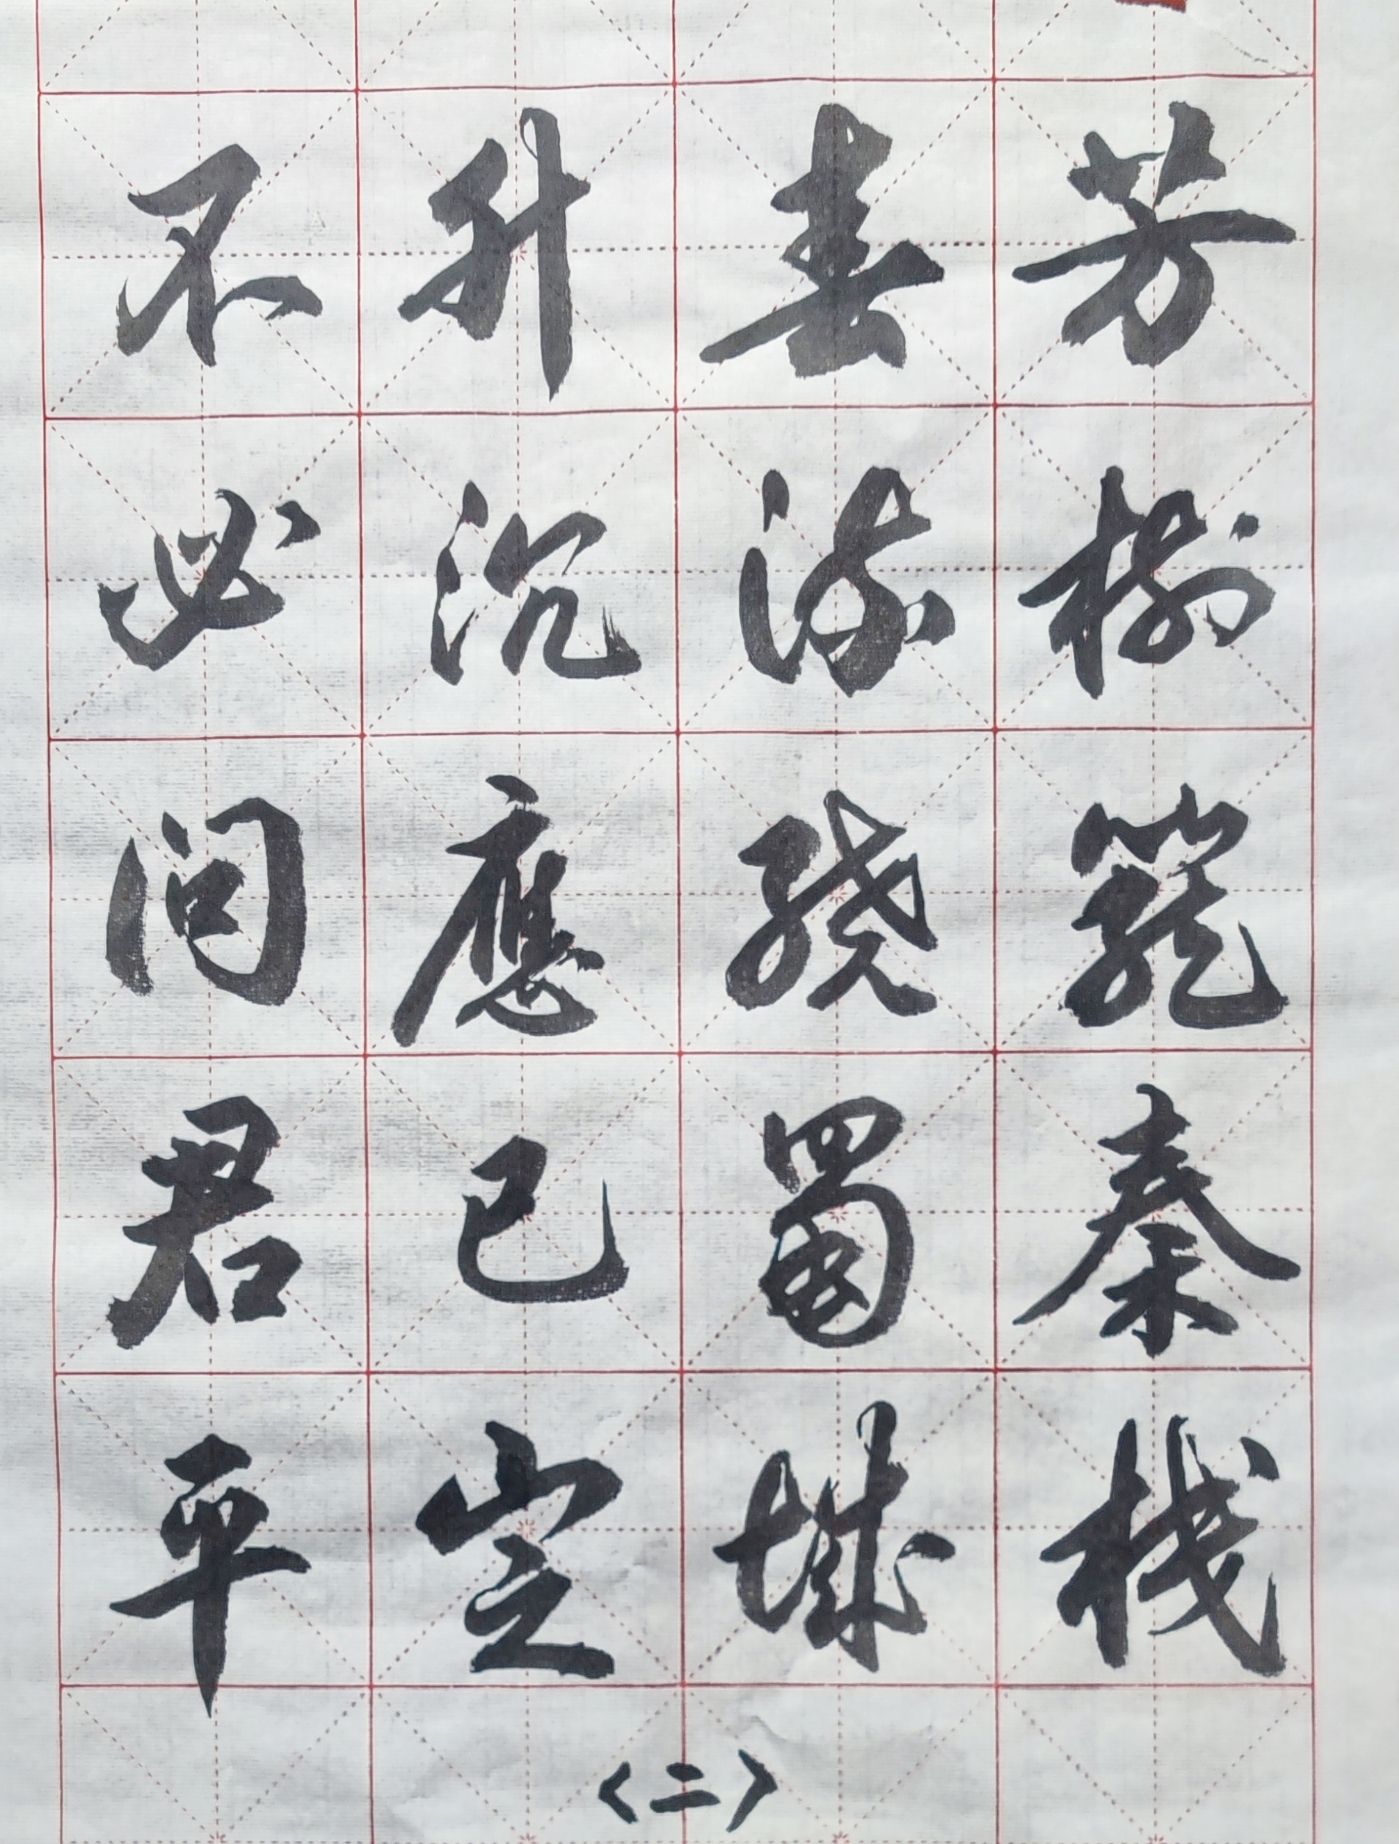 芳樹籠秦棧
春流繞蜀城
升沉應已定
不必問君平
〈二〉